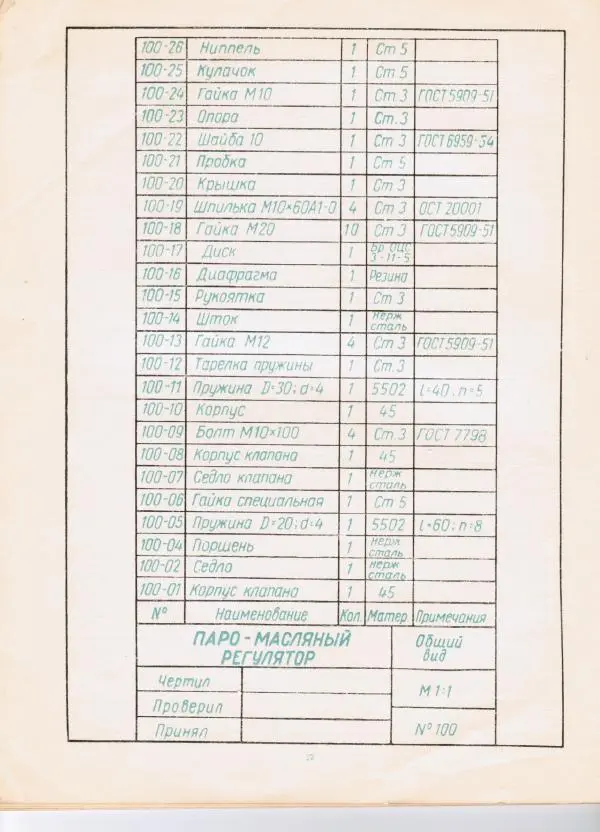 100-26 Ниппель 1 Ст 5
100-25 Кулачок 1 Ст 5
100-24 Гайка М10 1 Ст 3 ГОСТ 5909-51
100-23 Опора 1 Ст.3
100-22 Шайба 10 1 Ст 3 ГОСТ 6959-54
100-21 Пробка 1 Ст 5
100-20 Крышка 1 Ст 3
100-19 Шпилька М10×60А1-0 4 Ст 3 ОСТ 20001
100-18 Гайка М20 10 Ст 3 ГОСТ 5909-51
100-17 Диск 1 Бр ОЦС 3-11-5
100-16 Диафрагма 1 Резина
100-15 Рукоятка 1 Ст 3
100-14 Шток 1 нерж сталь
100-13 Гайка М12 4 Ст 3 ГОСТ 5909-51
100-12 Тарелка пружины 1 Ст.3
100-11 Пружина D=30; d=4 1 5502 l=40; n=5
100-10 Корпус 1 45
100-09 Болт М10×100 4 Ст.3 ГОСТ 7798
100-08 Корпус клапана 1 45
100-07 Седло клапана 1 нерж сталь
100-06 Гайка специальная 1 Ст 5
100-05 Пружина D=20; d=4 1 5502 l=60; n=8
100-04 Поршень 1 нерж сталь
100-02 Седло 1 нерж сталь
100-01 Корпус клапана 1 45
№ Наименование Кол. Матер Примечания
ПАРО-МАСЛЯНЫЙ
РЕГУЛЯТОР
Общий
вид
Чертил
М 1:1
Проверил
Принял
№ 100